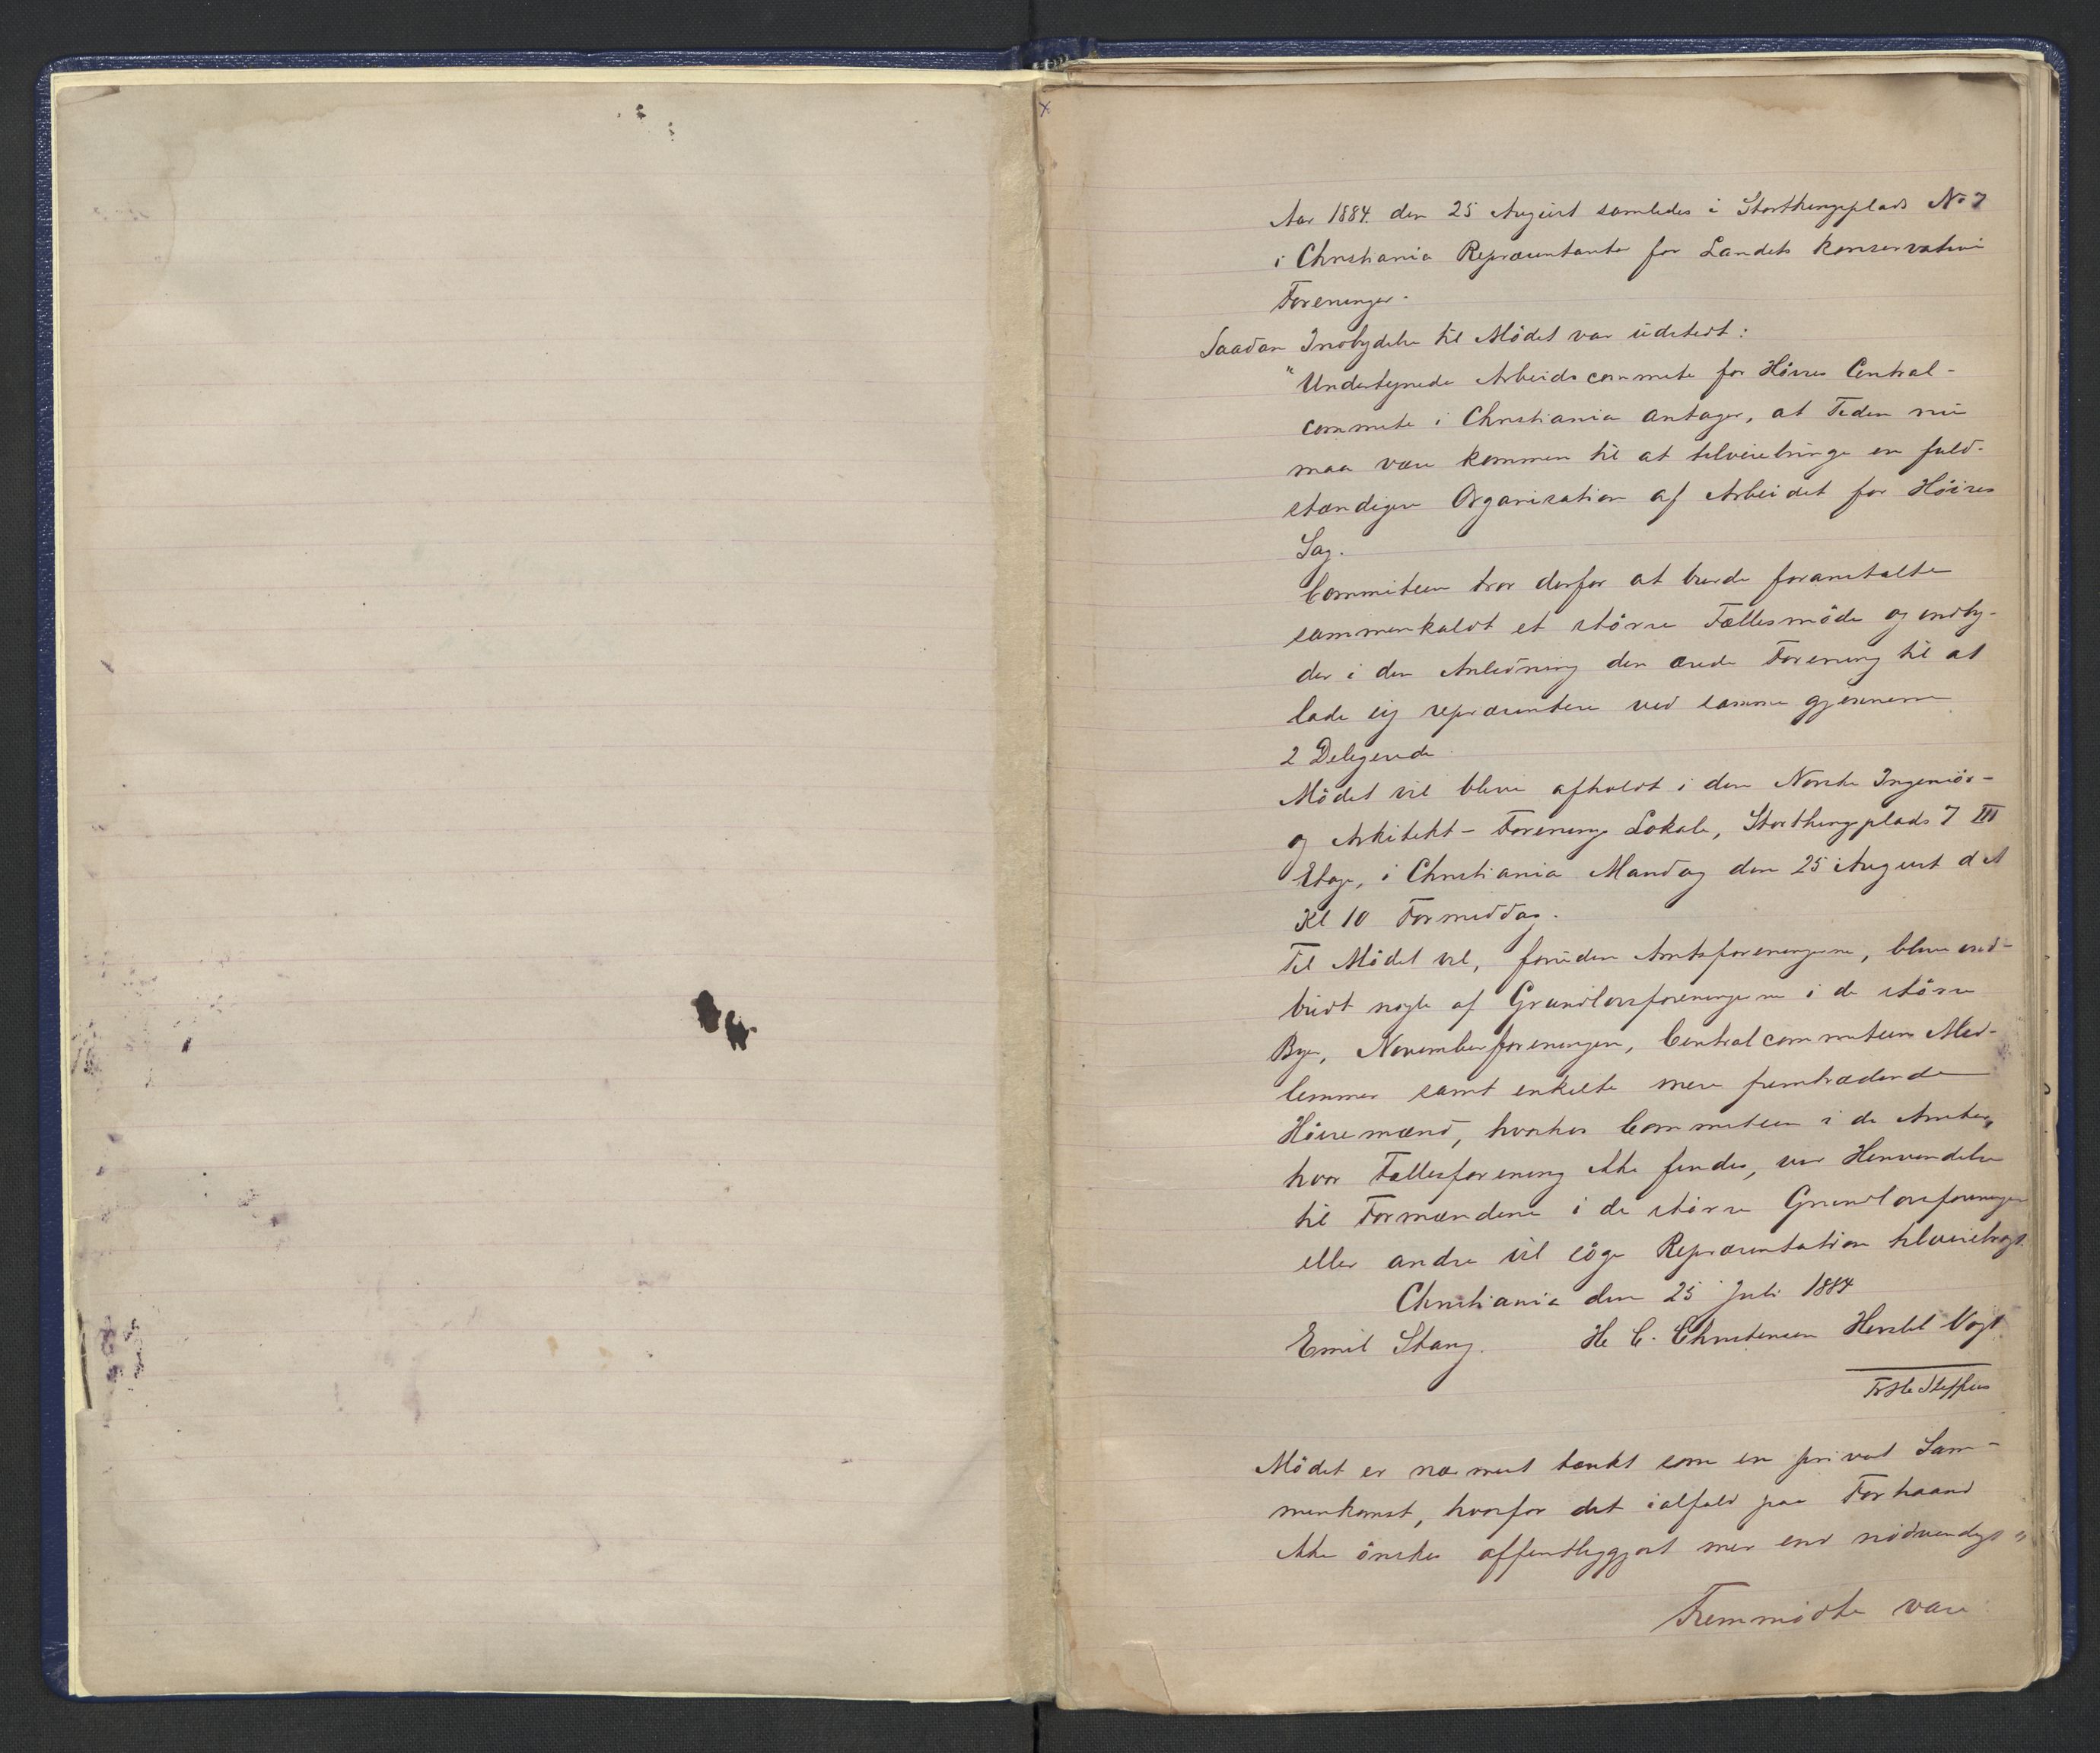 Aar 1884. den 25 August samledes i Storthingsplads No 7
i Christiania Repræsentanter for Landets konservative
Foreninger.
Saadan Indbydelse til Mödet var udstedt:
"Undertegnede Arbeidscommite for Höires Central-
commite i Christiania antager, at Tiden nu
maa være kommen til at tilveiebringe en fuld-
stændigere Organisation af Arbeidet for Höires
Sag.
Commiteen tror derfor at burde foranstalte
sammenkaldt et större Fællesmöde og indby-
der i den Anledning den ærede Forening til at
lade sig repræsentere ved samme gjennem
2 Delegerede.
Mödet vil blive afholdt i den Norske Ingeniör-
og Arkitekt-Forenings Lokale, Storthingsplads 7 III
Etage, i Christiania Mandag den 25 August d A
Kl 10 Formiddag.
Til Mödet vil, foruden Amtsforeningerne, blive ind-
budt nogle af Grundlovsforeningerne i de större
Byer, Novemberforeningen, Centralcommiteens Med-
lemmer samt enkelte mere fremtrædende
Höiremænd, hvorhos Commiteen i de Amter,
hvor Fællesforening ikke findes, ved Henvendelse
til Formændene i de större Grundlovsforeninger
eller andre vil söge Repræsentation tilveiebragt.
Christiania den 25 Juli 1884
Emil Stang. H C. Christensen Hersleb Vogt
Steffens
Mödet er nærmest tænkt som en privat Sam-
menkomst, hvorfor det ialfald paa Forhaand
ikke önskes offentliggjort mer end nödvendigt"
Fremmödte vare: